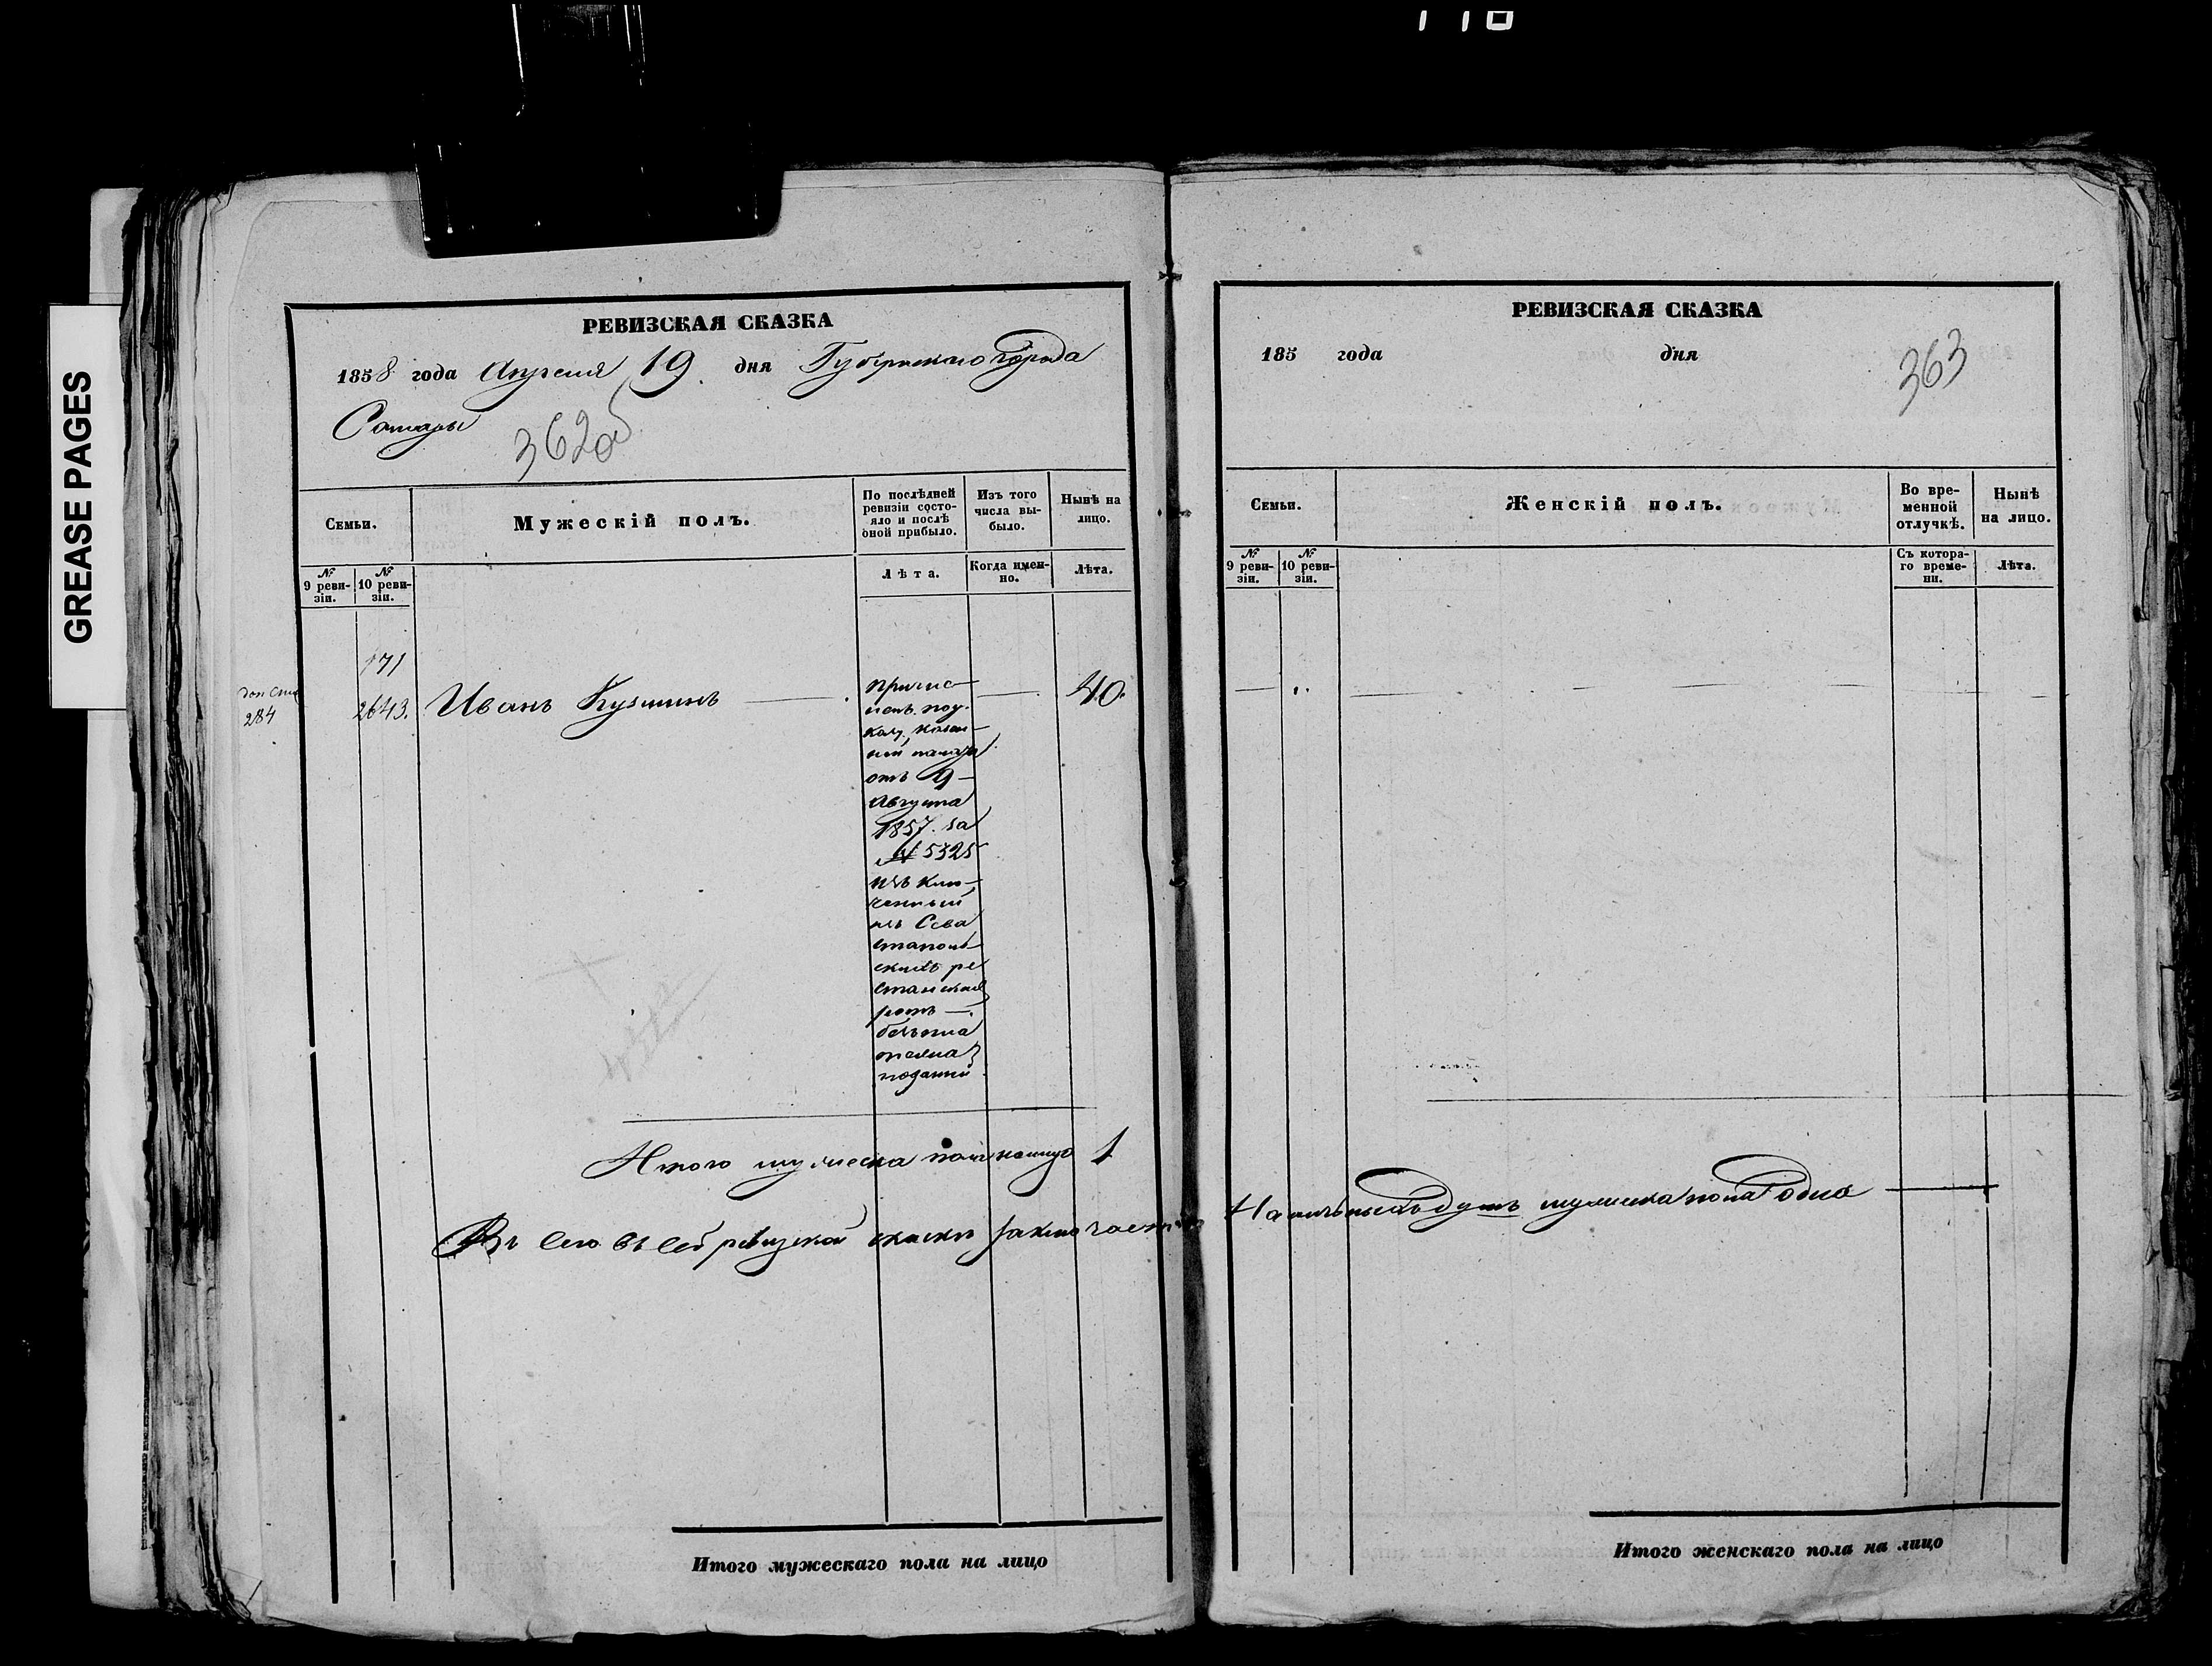 GREASE PAGES
РЕВИЗСКАЯ СКАЗКА
1858 года Апреля 19 дня Губернского города
Самары
362об
Семьи.
Мужескій полъ.
По послѣдней ревизіи состояло и послѣ оной прибыло.
Изъ того числа выбыло.
Нынѣ на лицо.
№ 9 ревизіи.
№ 10 ревизіи.
Лѣта.
Когда именно.
Лѣта.
171
284
2643. Иванъ Кузминъ
40.
отъ 9
Августа
1857. за
№ 5325
изъ Сева
стополь
ротъ
подати
Итого мужеска пола налицо 1
Всего въ сей ревизской сказке заключается
РЕВИЗСКАЯ СКАЗКА
185 года дня
363
Семьи.
Женскій полъ.
Во временной отлучкѣ.
Нынѣ на лицо.
№ 9 ревизіи.
№ 10 ревизіи.
Съ котораго времени.
Лѣта.
Наличныхъ душъ мужеска пола одна
Итого мужескаго пола на лицо
Итого женскаго пола на лицо